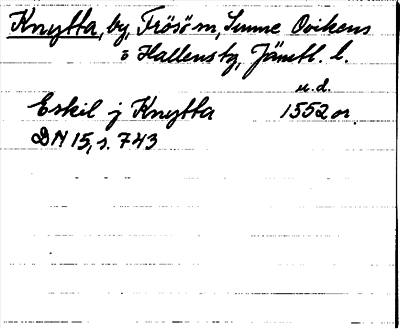 Knytta, by, Frösö sn, Sunne Ovikens
o Hallens tg, Jämtl. l.
u.d.
Eskil j Knytta 1552 or.
DN 15, s. 743